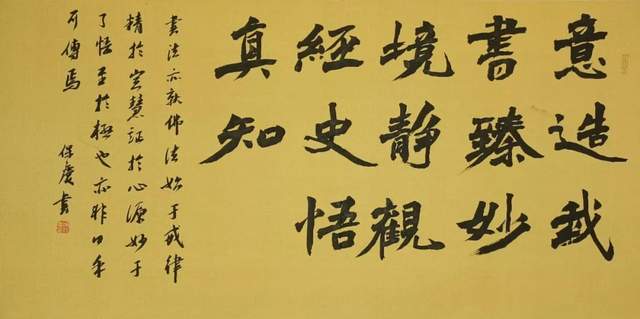 意造我
書臻妙
境靜觀
經史悟
真知
書法亦猷佛法始于戒律
精於定慧証於心源妙于
了悟至於極也亦非口手
可傳焉
保慶書